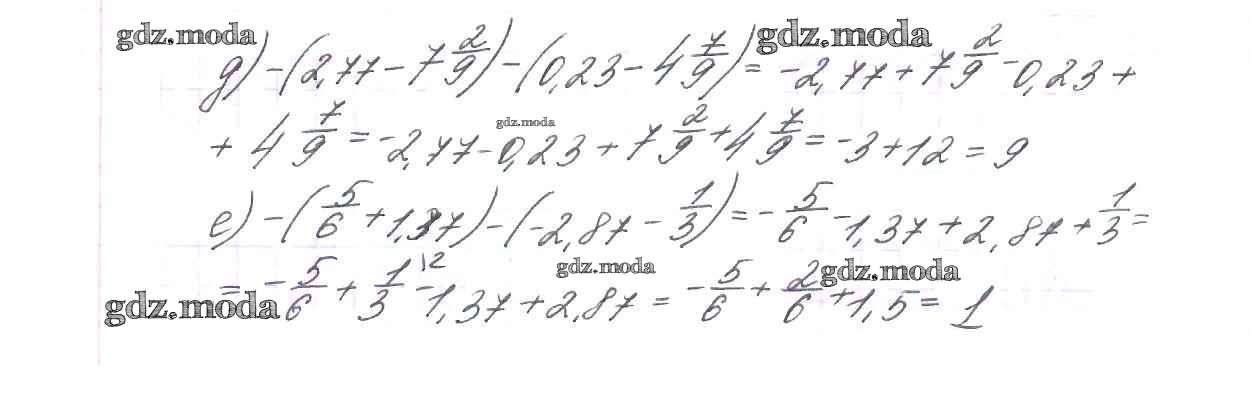 gdz.moda gdz.moda
д) -(2,77 - 7 2/9) - (0,23 - 4 7/9) = -2,77 + 7 2/9 - 0,23 +
gdz.moda
+ 4 7/9 = -2,77 - 0,23 + 7 2/9 + 4 7/9 = -3 + 12 = 9
е) -(5/6 + 1,37) - (-2,87 - 1/3) = -5/6 - 1,37 + 2,87 + 1/3 =
gdz.moda gdz.moda
= -5/6 + 1/3 \2 - 1,37 + 2,87 = -5/6 + 2/6 + 1,5 = 1
gdz.moda